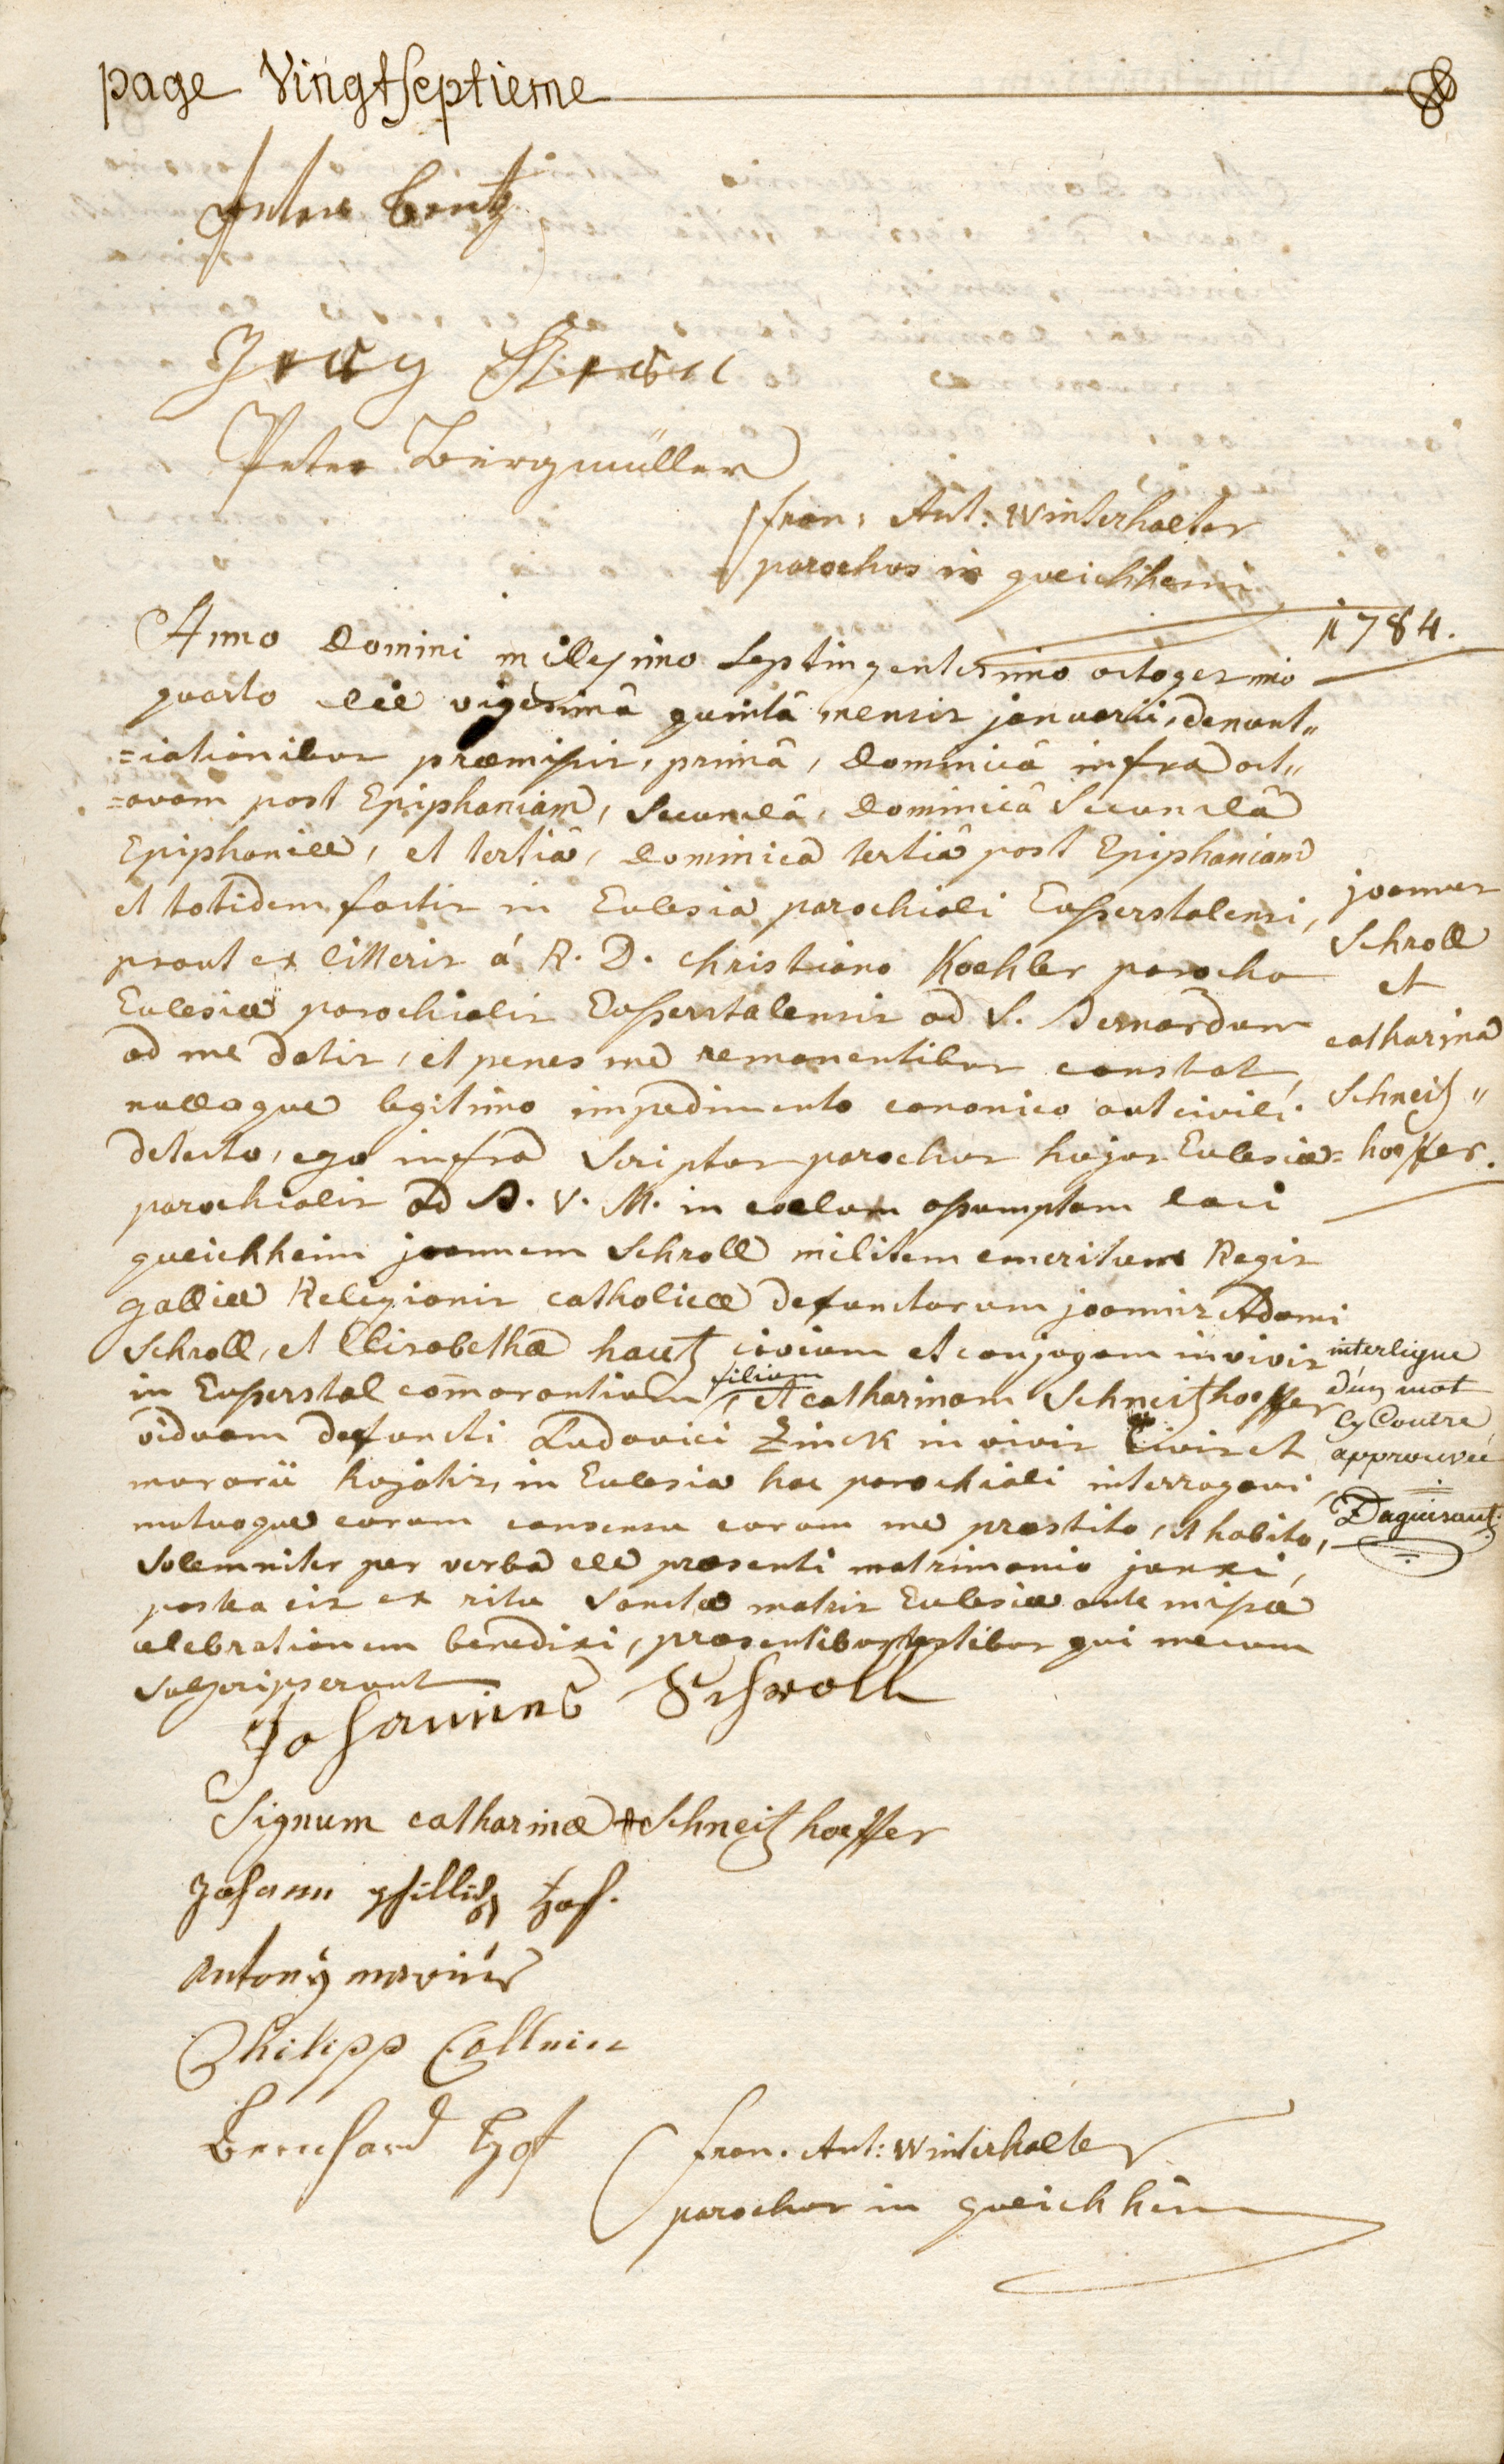 page Vingtseptieme
Peter Bentz
Peter Bergmüller
fran: Ant: Winterhalter
parochus in queichheim
1784.
Anno Domini millesimo Septingentesimo octogesimo
quarto die vigesimâ quintâ mensis januarii, denunt„
=iationibus præmissis, primâ, Dominicâ infra oct„
=avam post Epiphaniam, Secundâ, Dominicâ Secundâ
Epiphaniæ, et tertiâ, Dominicâ tertiâ post Epiphaniam
et totidem factis in Eclesia parochiali Eusserstalensi,
prout ex litteris á R. D. christiano Koehler parocho
Eclesiæ parochialis Eusserstalensis ad S. Bernardum
ad me datis, et penes me remanentibus constat,
nulloque legitimo impedimento canonico aut civili
detecto, ego infra Scriptus parochus hujus Eclesiæ
parochialis ad B. V. M. in cœlum assumptam loci
queichheim joannem Schroll militem emeritum Regis
galliæ Religionis catholicæ defunctorum joannis Adami
Schroll, et Elisabethæ hautz civium et conjugum in vivis
in Eusserstal com̄orantium filium, et catharinam Schneitzhoeffer
viduam defuncti Ludovici Zinck in vivis Civis et
murarii hujatis, in Eclesia hac parochiali interrogavi
mutuoque eorum consensu coram me præstito, et habito,
Solemniter per verba de præsenti matrimonio junxi,
postea eis ex ritu Sanctæ matris Eclesiæ ante missæ
celebrationem benedixi, præsentibus testibus qui mecum
subscripserunt
joannes
Schroll
et
catharina
Schneitz„
=hoeffer.
interligne
d'un mot
Cy Contre
approuvée
Daguisant
Johannes Schroll
Signum catharinæ + Schneitzhoeffer
Johann phillips Hof.
Antony marius
Philipp
Bernhard Hof
fran. Ant: Winterhalter
parochus in queichheim